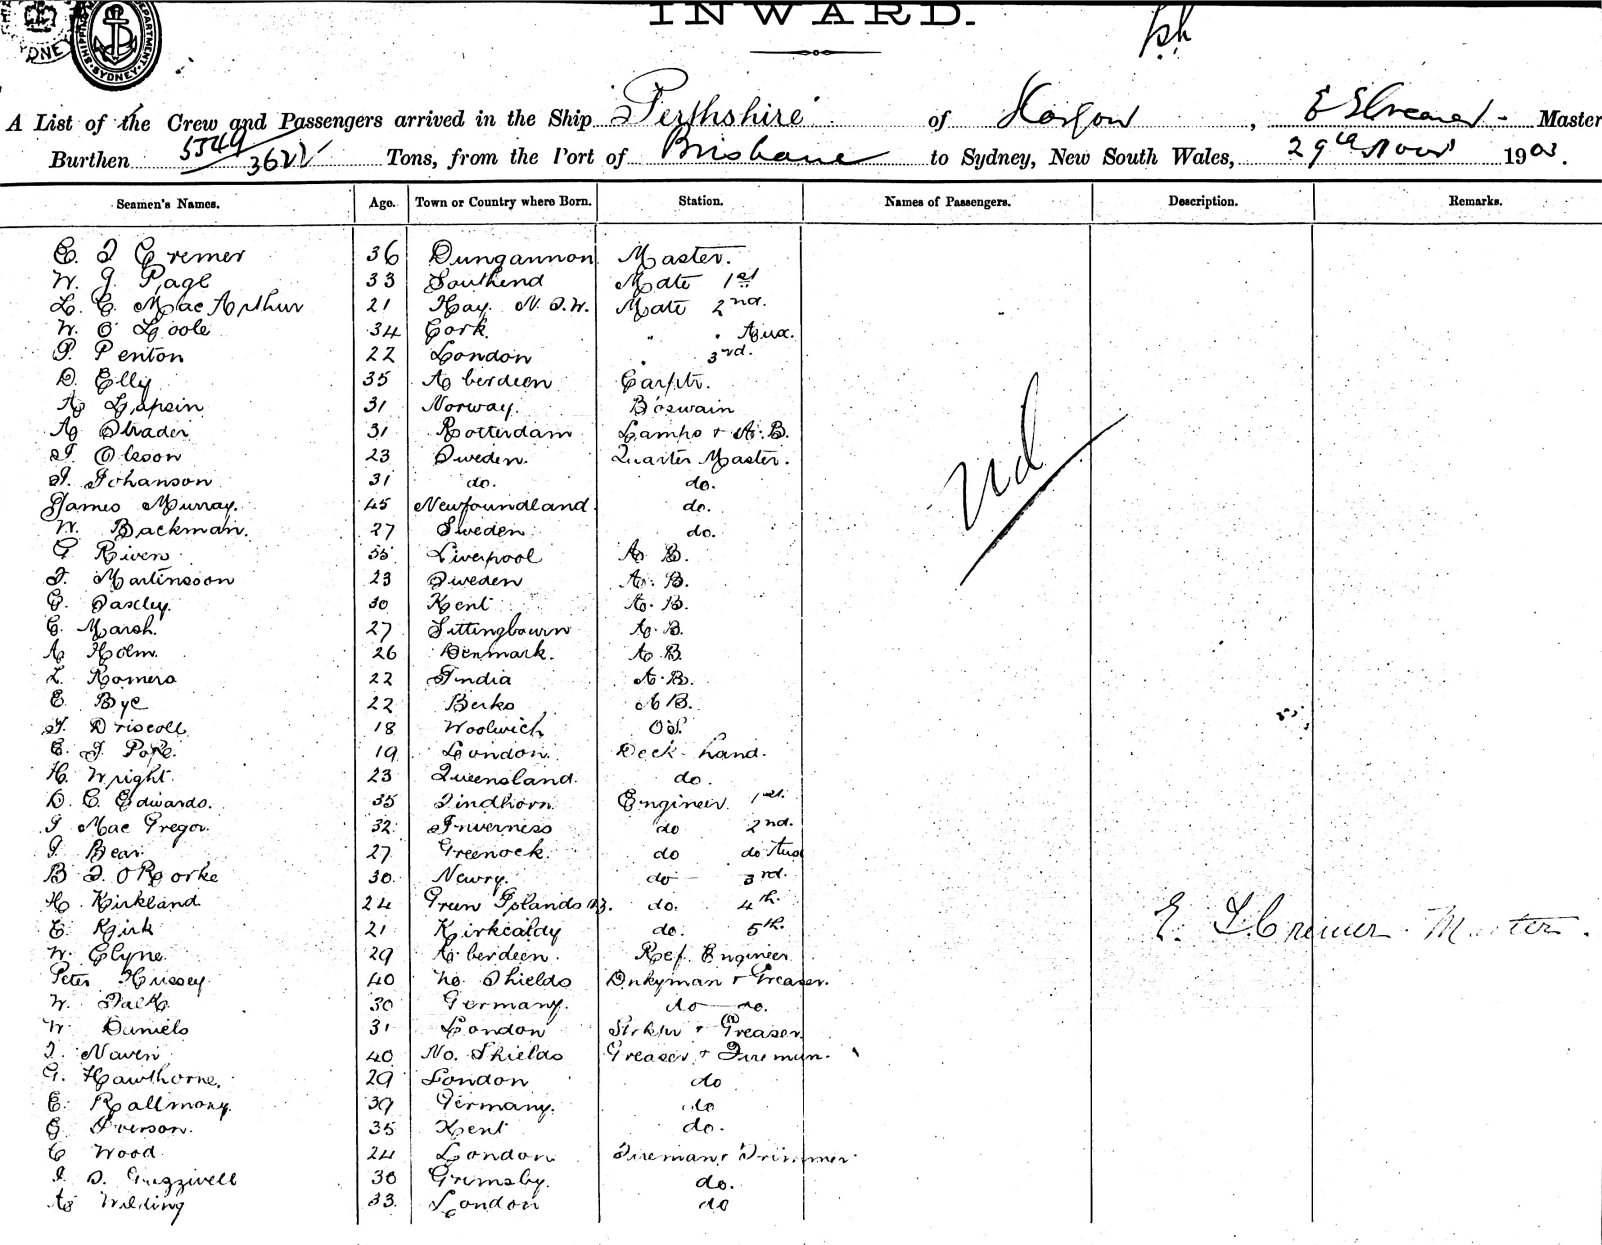 SYDNEY
SHIPPING DEPARTMENT SYDNEY
INWARD.
A List of the Crew and Passengers arrived in the Ship "Perthshire" of Glasgow, E F Cremer - Master
Burthen 5549/3622 Tons, from the Port of Brisbane to Sydney, New South Wales, 29th Novr 1903.
Seamen's Names. Age. Town or Country where Born. Station. Names of Passengers. Description. Remarks.
E. F Cremer 36 Dungannon Master.
W. J. Page 33 Southend Mate 1st
L. C. MacArthur 21 Hay. N.S.W. Mate 2nd.
W. O Loole 34 Cork. " "
P. Penton 22 London " 3rd.
D. Elly 35 Aberdeen Carptr.
A 31 Norway. Boswain
A Strader 31 Rotterdam Lamps & A.B.
J. Olsson 23 Sweden. Quarter Master.
J. Johanson 31 do. do.
James Murray. 45 Newfoundland. do.
W. Backman. 27 Sweden do.
G Rivers Liverpool A. B.
F. Martinsson 23 Sweden A. B.
G. 30 Kent A. B.
C. Marsh. 27 Sittingbourn A. B.
A Holm. 26 Denmark. A. B.
L. Romero 22 India A. B.
E. Bye 22 Berks A B.
J. Driscoll 18 Woolwich O.S.
E. J. Pope. 19 London. Deck hand.
H. Wright 23 Queensland. do.
D. C. Edwards. 35 Findhorn. Engineer 1st.
J Mac Gregor. 32 Inverness do 2nd.
J. Bear 27 Greenock. do do
B. F. O'Rorke 30. Newry. do 3rd.
H. Kirkland. 24 Green Islands N.Z. do. 4th.
E. Kirk 21 Kirkcaldy do. 5th.
W. Clyne. 29 Aberdeen. Ref. Engineer
Peter Hussey 40 No. Shields Dnkyman & Greaser.
W. 30 Germany. do do.
W. Daniels 31 London & Greaser
J. Naven 40 No. Shields Greaser & Fireman.
G. Hawthorne. 29 London do
E. Rallmony. 39 Germany. do
G. Iverson. 35 Kent do.
C Wood 24 London Fireman & Trimmer
30 Grimsby. do.
A Wilding 33. London do
Nil
E. F Cremer. Master.